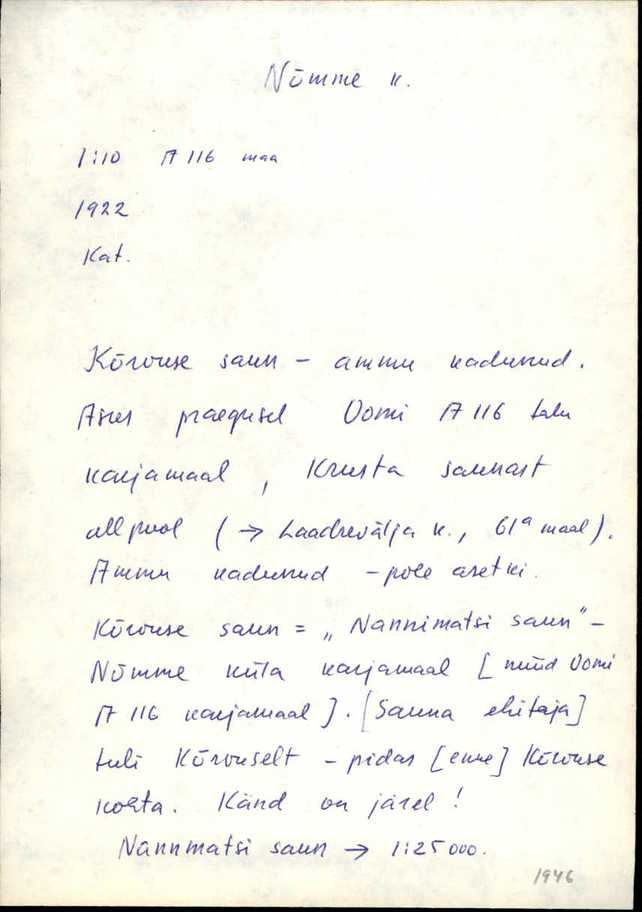 Nõmme k.
1:10 A 116 maa
1922
Kat.
Kõrouse saun – ammu kadunud.
Asus praegusel Oomi A 116 talu
karjamaal, Krusta saunast
allpool (→ Laadsevälja k., 61ª maal).
Ammu kadunud – pole asetki.
Kõrouse saun = „Nannimatsi saun" –
Nõmme küla karjamaal [nüüd Oomi
A 116 karjamaal]. [Sauna ehitaja]
tuli Kõrouselt – pidas [enne] Kõrouse
kohta. Känd on järel!
Nannmatsi saun → 1:25 000.
1946